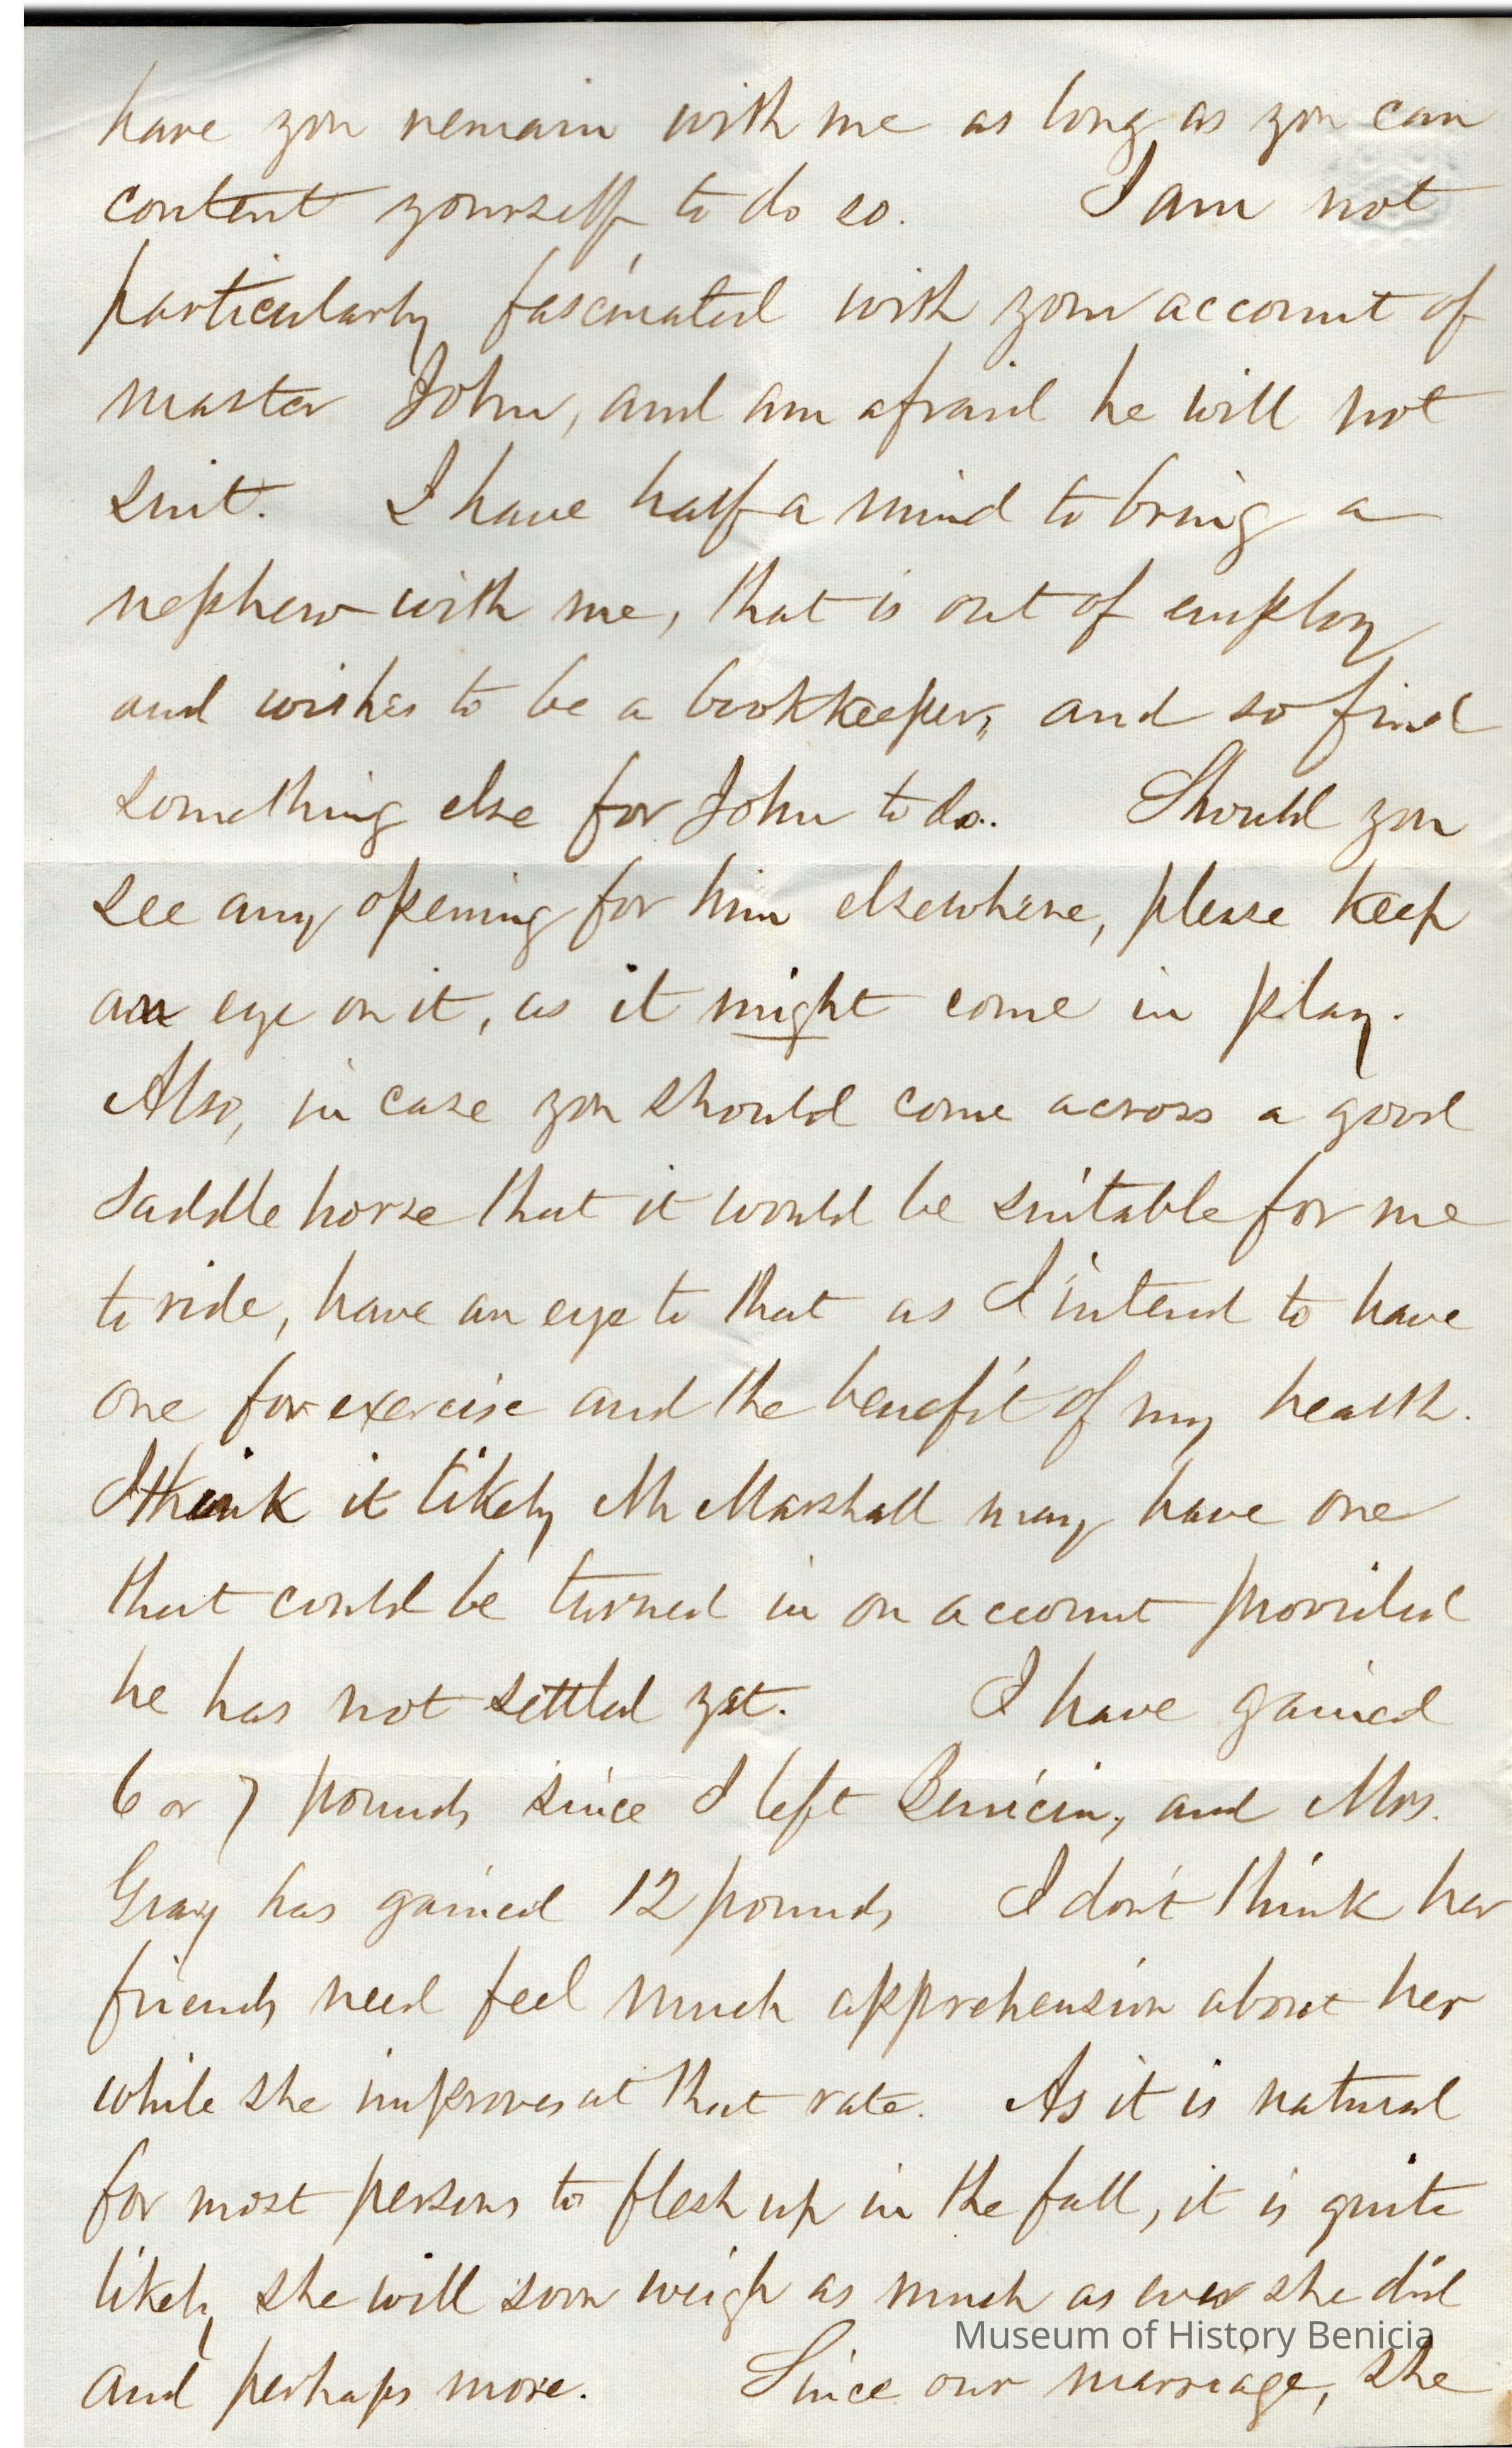 have you remain with me as long as you can
content yourself to do so. I am not
particularly fascinated with your account of
master John, and am afraid he will not
suit. I have half a mind to bring a
nephew with me, that is out of employ
and wishes to be a bookkeeper, and so find
something else for John to do. Should you
see any opening for him elsewhere, please keep
an eye on it, as it might come in play.
Also, in case you should come across a good
saddle horse that it would be suitable for me
to ride, have an eye to that as I intend to have
one for exercise and the benefit of my health.
I think it likely Mr Marshall may have one
that could be turned in on account provided
he has not settled yet. I have gained
6 or 7 pounds since I left Benicia, and Mrs.
Gray has gained 12 pounds I don't think her
friends need feel much apprehension about her
while she improves at that rate. As it is natural
for most persons to flesh up in the fall, it is quite
likely she will soon weigh as much as ever she did
and perhaps more. Since our marriage, she
Museum of History Benicia